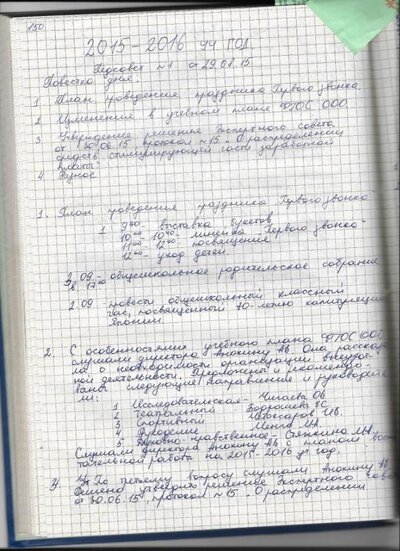 150
2015-2016 уч год.
Педсовет №1 от 29.08.15
Повестка дня:
1 План проведения праздника Первого звонка
2 Изменения в учебном плане ФГОС ООО
3 Утверждение решение Экспертного совета
от 30.06.15, протокол №15 „О распределении
средств стимулирующей части заработной
платы"
4 Разное
1. План проведения праздника Первого звонка
1 9⁰⁰ - выставка букетов
10⁰⁰ - 10⁴⁰ - линейка „Первого звонка"
11⁰⁰ - 12⁰⁰ - посвящение
12⁰⁰ - уход детей.
09 - общешкольное родительское собрание
в 17⁰⁰
2 09 - провести общешкольный классный
час, посвященный 70-летию капитуляции
Японии.
2. С особенностями учебного плана ФГОС ООО
слушали директора Анохину АВ. Она расска
ла о необходимости организации внеуроч-
ной деятельности. Предложены и рекомендо-
ваны следующие направления и руководите
ли:
1 Исследовательская - ОВ
2 Театральный
3 Спортивный
4
5 Духовно-нравственное МА
Слушали директора Анохину АВ с планом вос
тательной работы на 2015-2016 уч год.
3. По третьему вопросу слушали Анохину АВ
Решено утвердить решение Экспертного сове
от 30.06.15, протокол №15 - О распределении